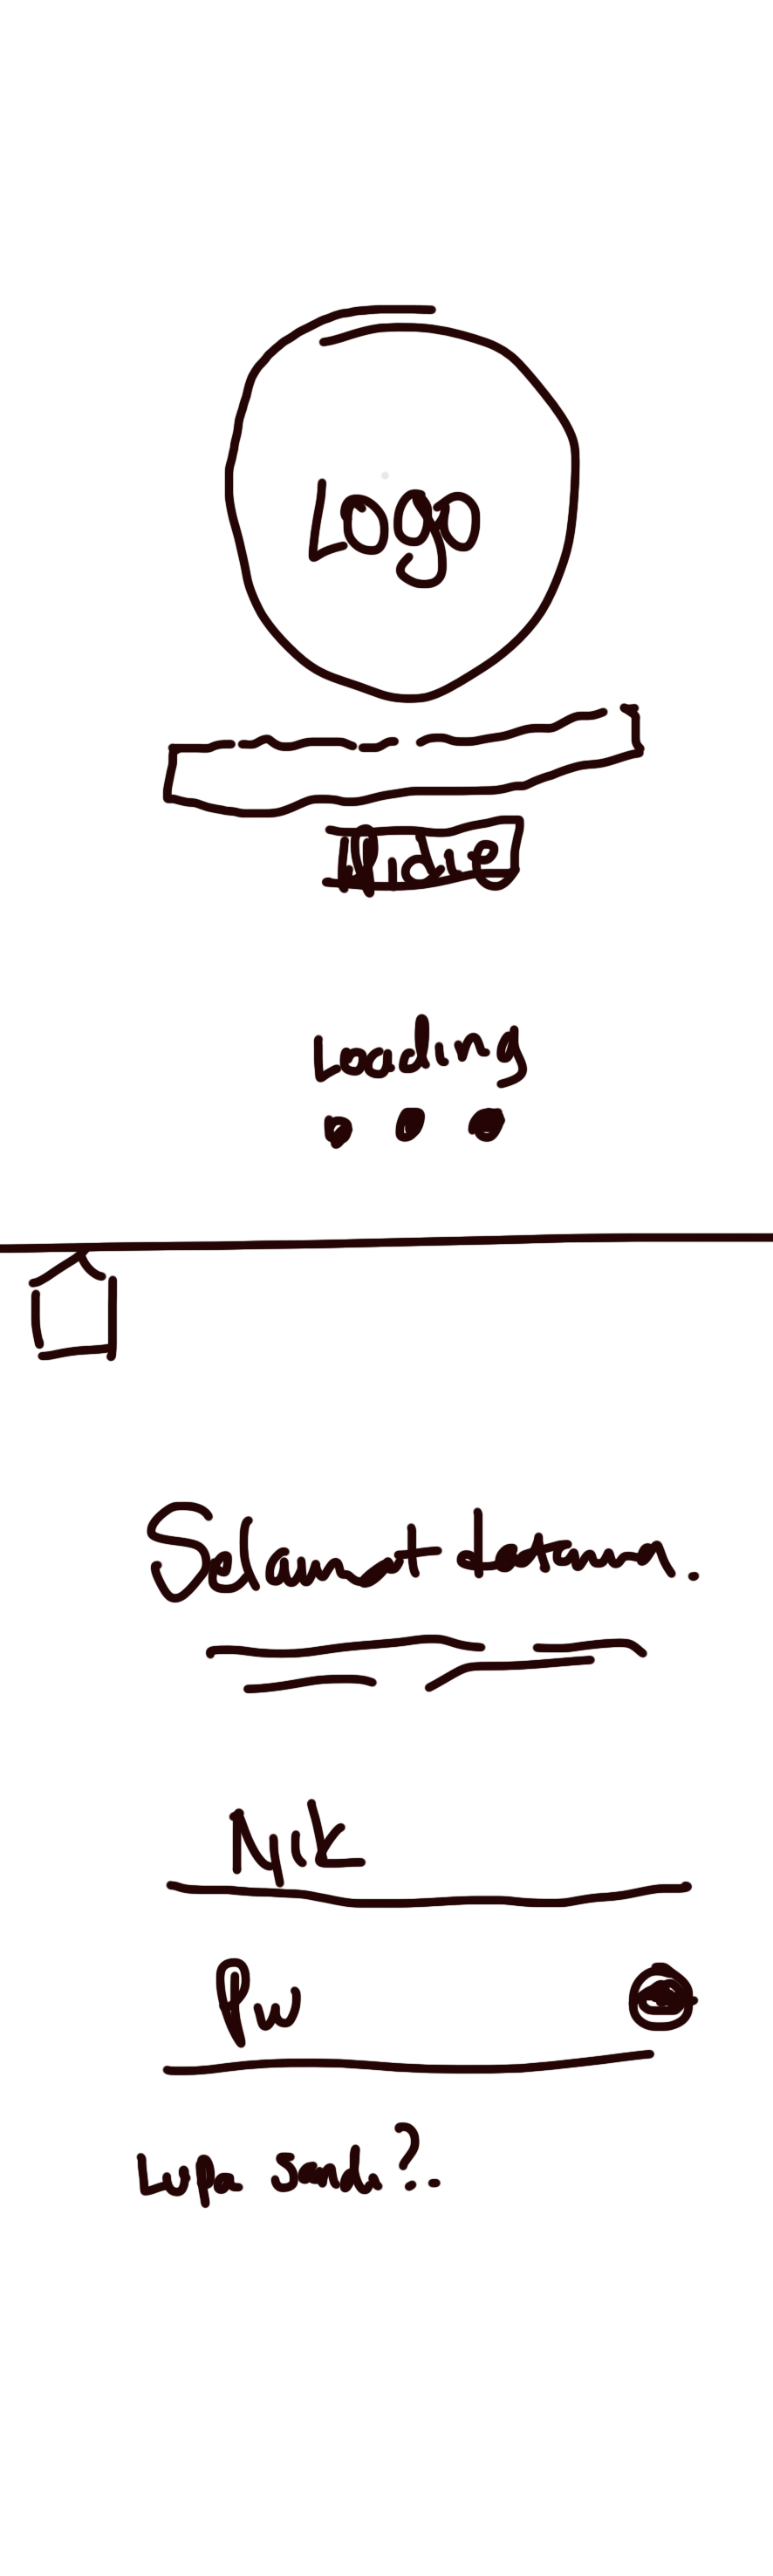 Logo
Loading
Selamat datang.
Nik
Pw
Lupa sandi?.